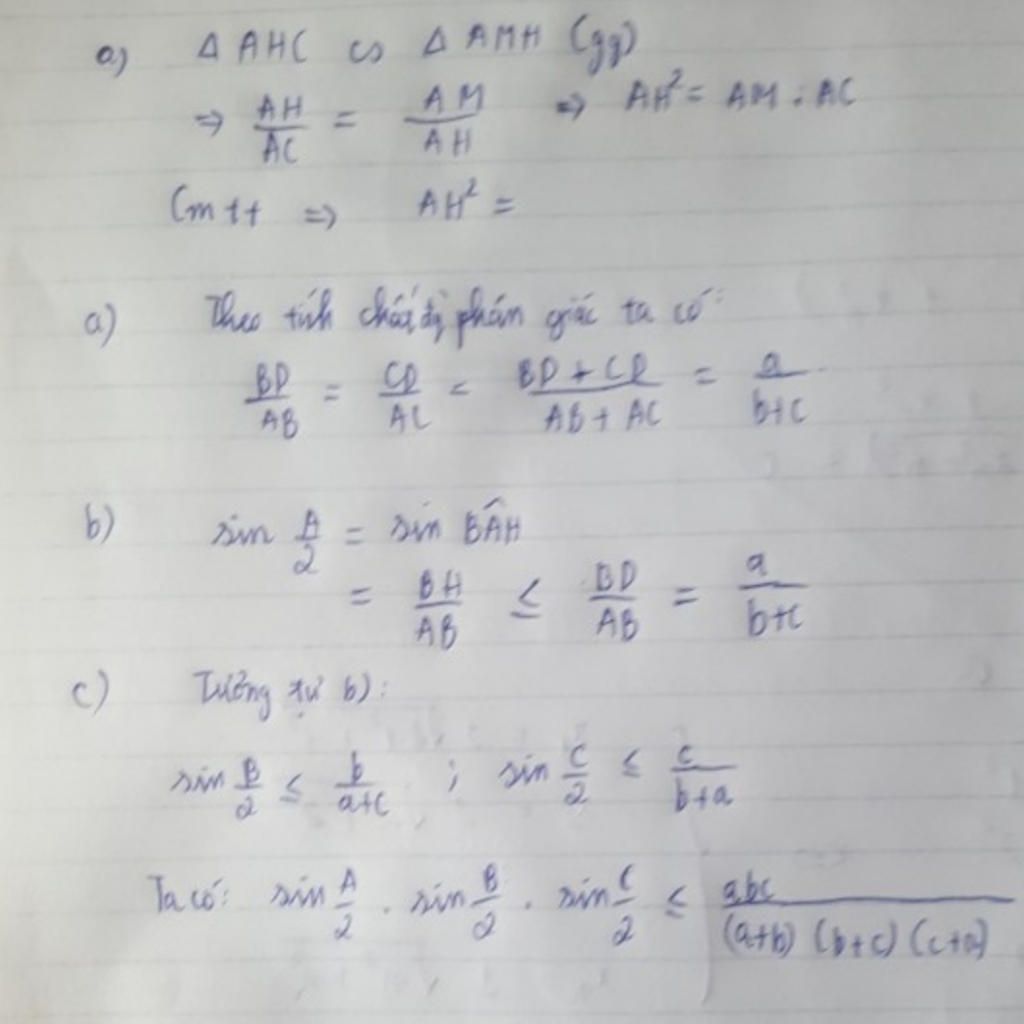 a) Δ AHC ∽ Δ AMH (gg)
⇒ AH/AC = AM/AH ⇒ AH² = AM . AC
Cmtt ⇒ AH² =
a) Theo tính chất đg phân giác ta có:
BD/AB = CD/AC = (BD + CD)/(AB + AC) = a/(b+c)
b) sin A/2 = sin BÂH
= BH/AB ≤ BD/AB = a/(b+c)
c) Tương tự b):
sin B/2 ≤ b/(a+c) ; sin C/2 ≤ c/(b+a)
Ta có: sin A/2 . sin B/2 . sin C/2 ≤ abc/((a+b) (b+c) (c+a))